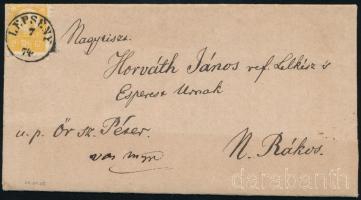 LEPSÉNY
7
74
Nagytiszt.
Horváth János ref. Lelkész s
Esperes Urnak
u. p. Őr sz. Péter.
vas mgye
N. Rákos.
darabanth